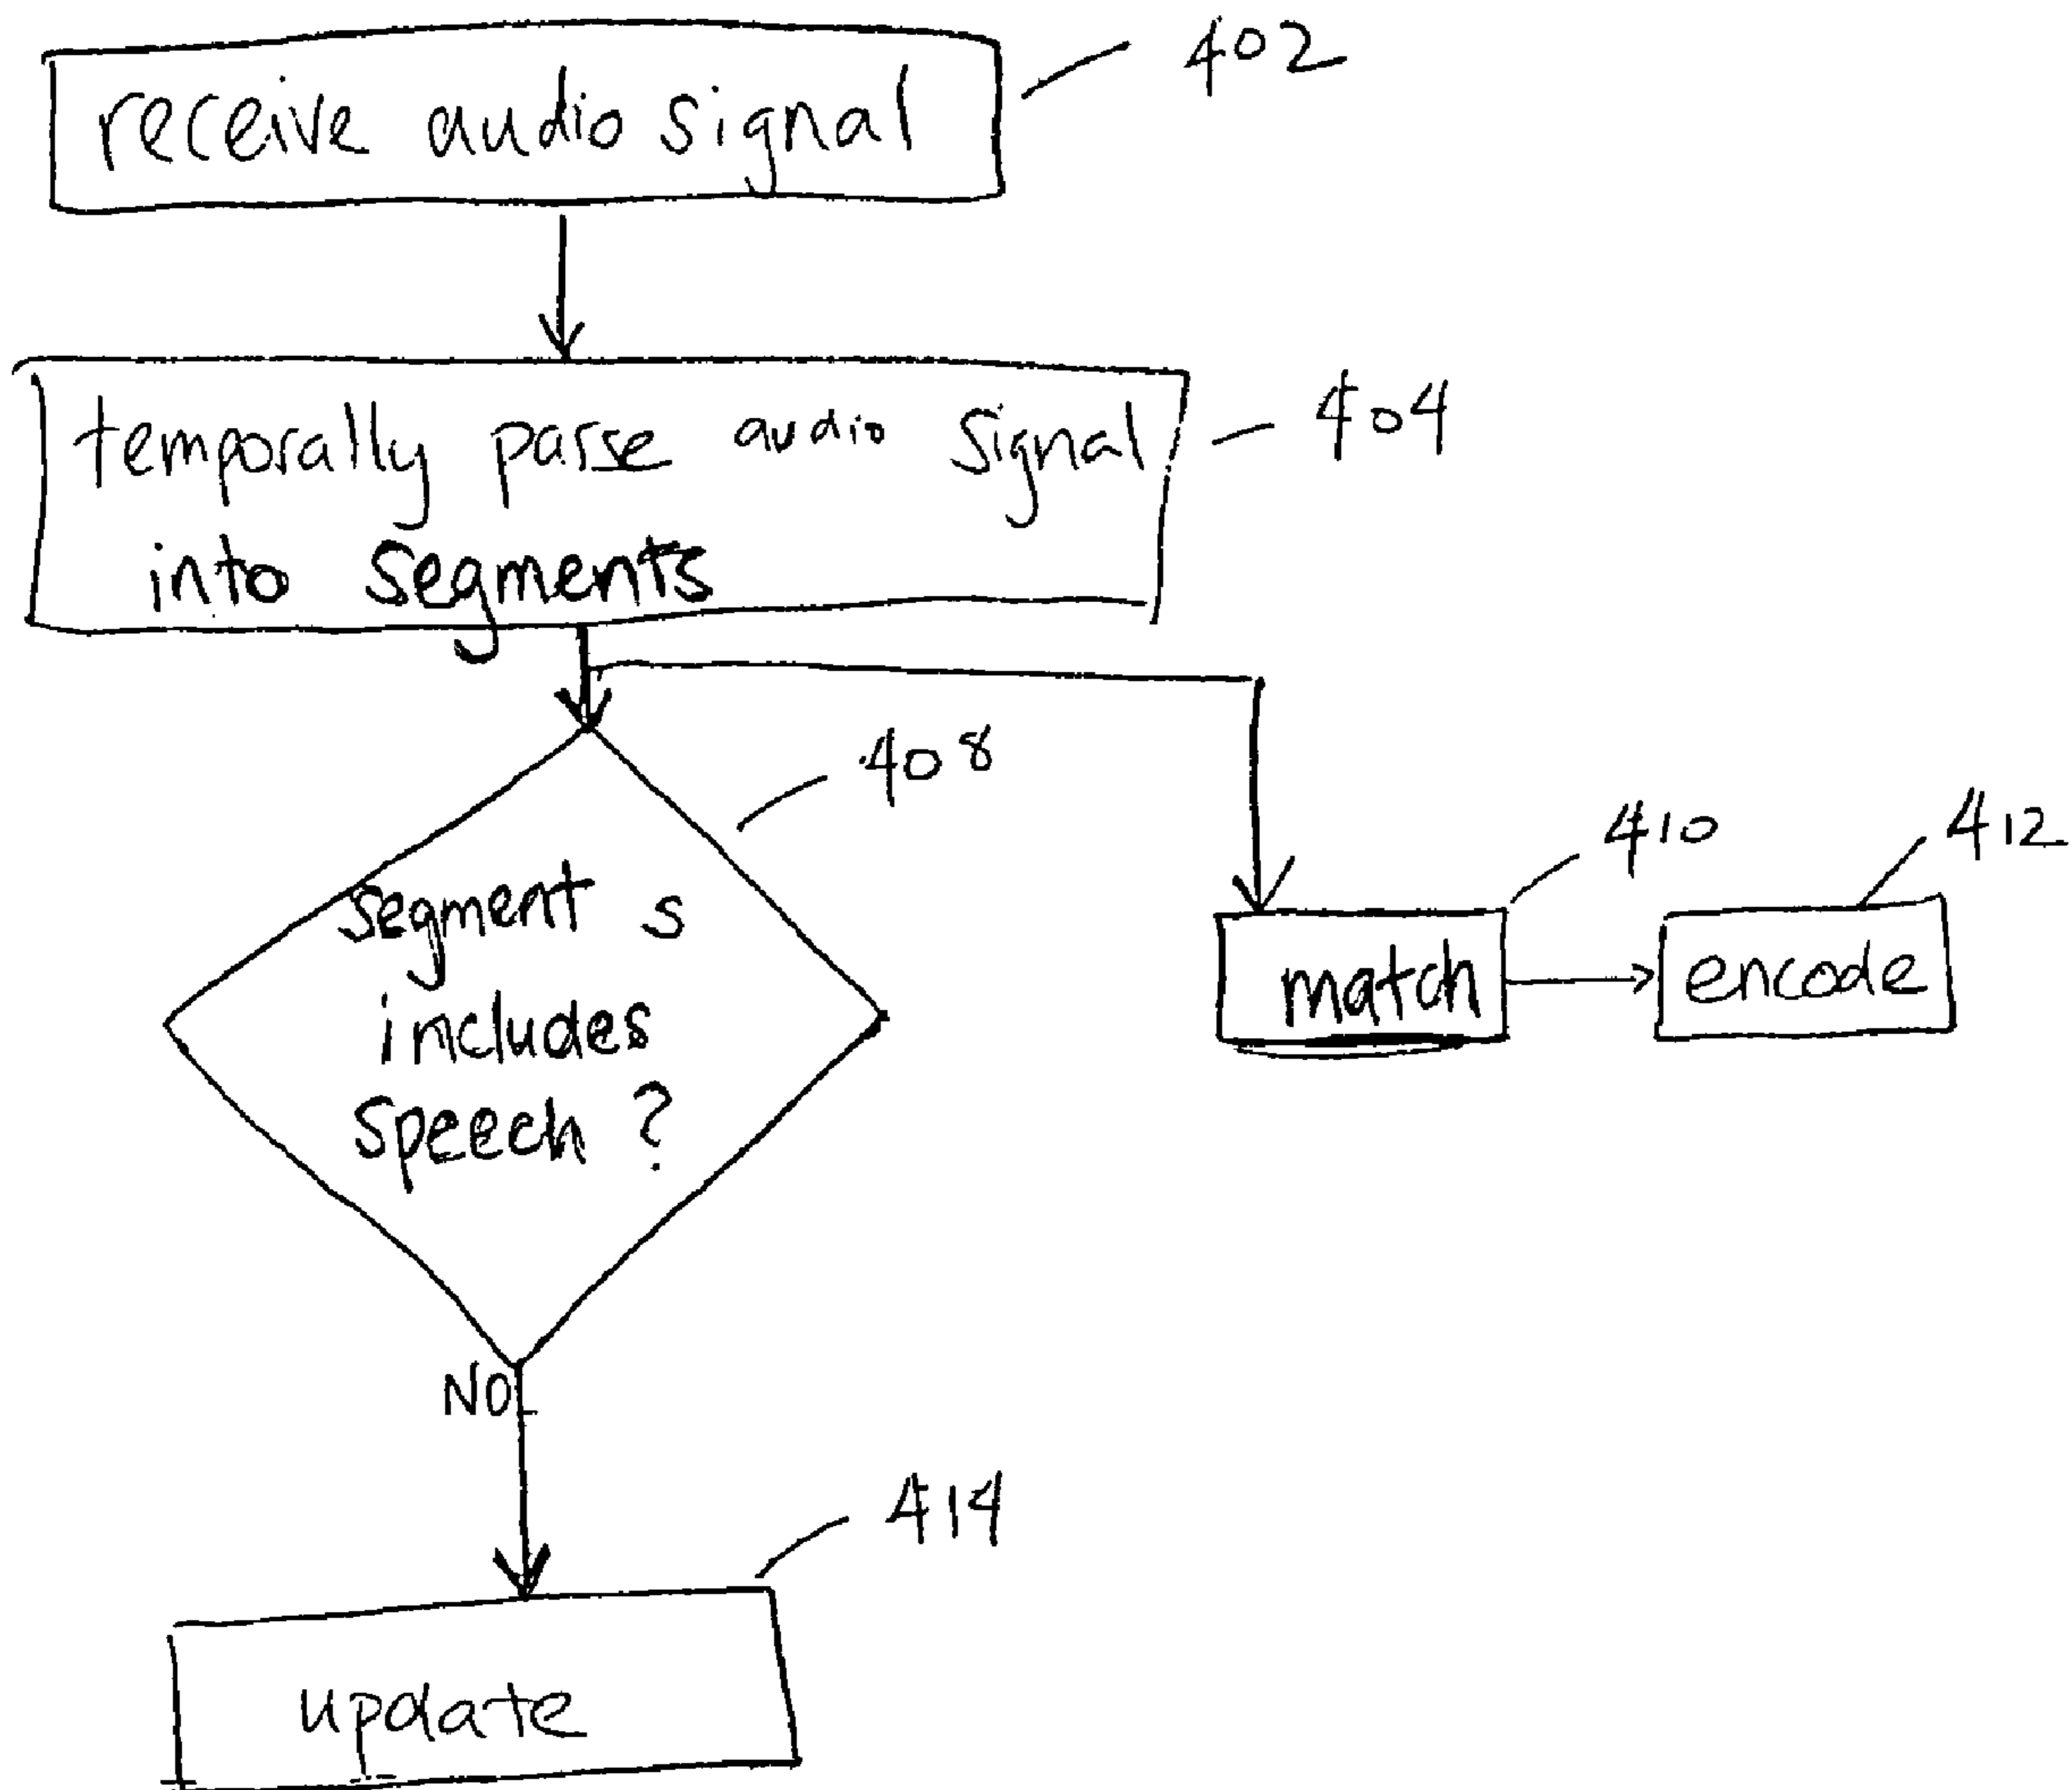 receive audio signal
402
temporally parse audio signal
into segments
404
408
segment s
includes
speech ?
410
match
412
encode
NO
414
update